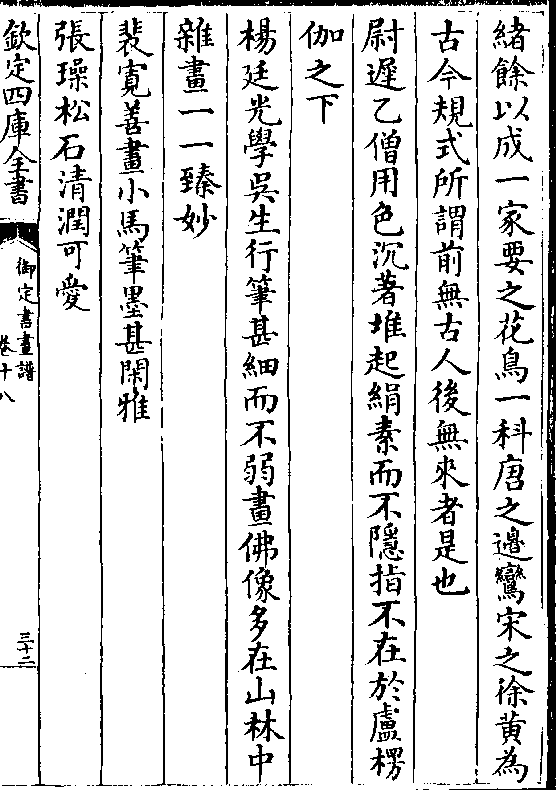 緒餘以成一家要之花鳥一科唐之邊鸞宋之徐黃為
古今規式所謂前無古人後無來者是也
尉遲乙僧用色沉著堆起絹素而不隱指不在於盧楞
伽之下
楊廷光學吳生行筆甚細而不弱畫佛像多在山林中
雜畫一一臻妙
裴寬善畫小馬筆墨甚閑雅
張璪松石清潤可愛
欽定四庫全書
御定書畫譜
卷十八
三十二